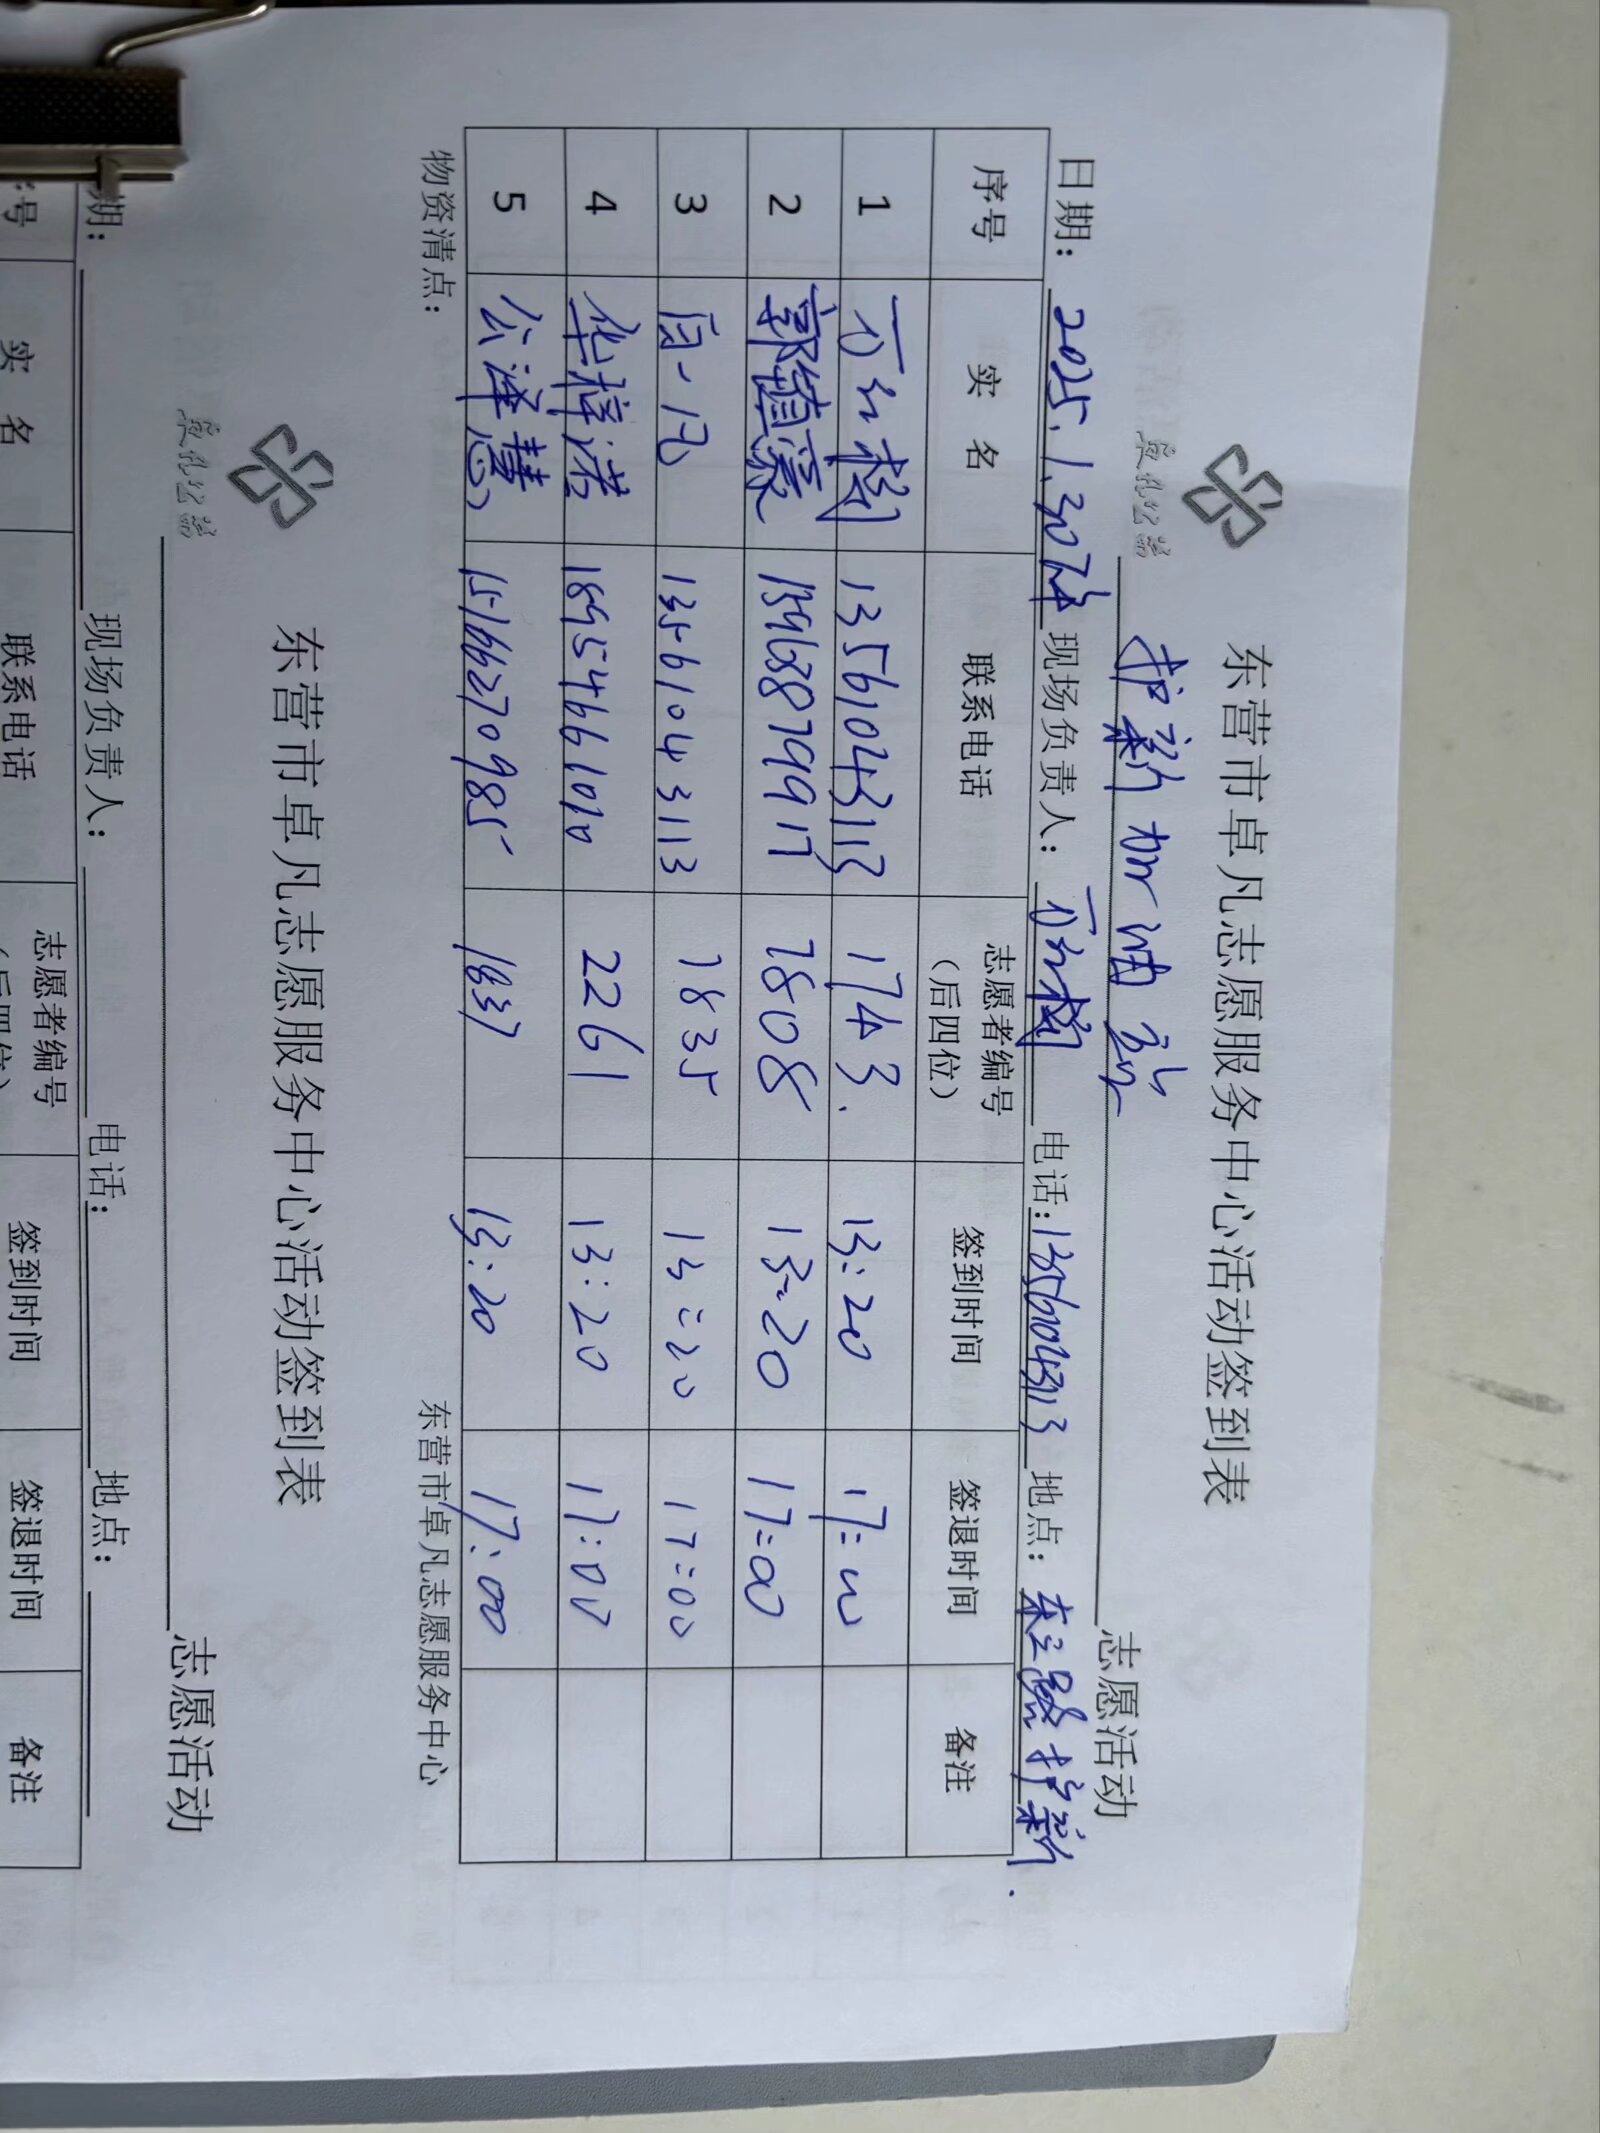 卓凡公益
东营市卓凡志愿服务中心活动签到表
护薪加油站 志愿活动
日期: 2025.1.30下午 现场负责人: 树 电话: 13561043113 地点: 东三路护薪.
序号 实 名 联系电话 志愿者编号(后四位) 签到时间 签退时间 备注
1 树 13561043113 1743. 13:20 17:00
2 郭 7808 13:20 17:00
3 白一凡 13561043113 7835 13:20 17:00
4 华梓诺 18954661010 2261 13:20 17:00
5 公泽慧 15166270985 1837 13:20 17:00
物资清点: 东营市卓凡志愿服务中心
卓凡公益
东营市卓凡志愿服务中心活动签到表
志愿活动
期: 现场负责人: 电话: 地点:
序号 实 名 联系电话 志愿者编号(后四位) 签到时间 签退时间 备注